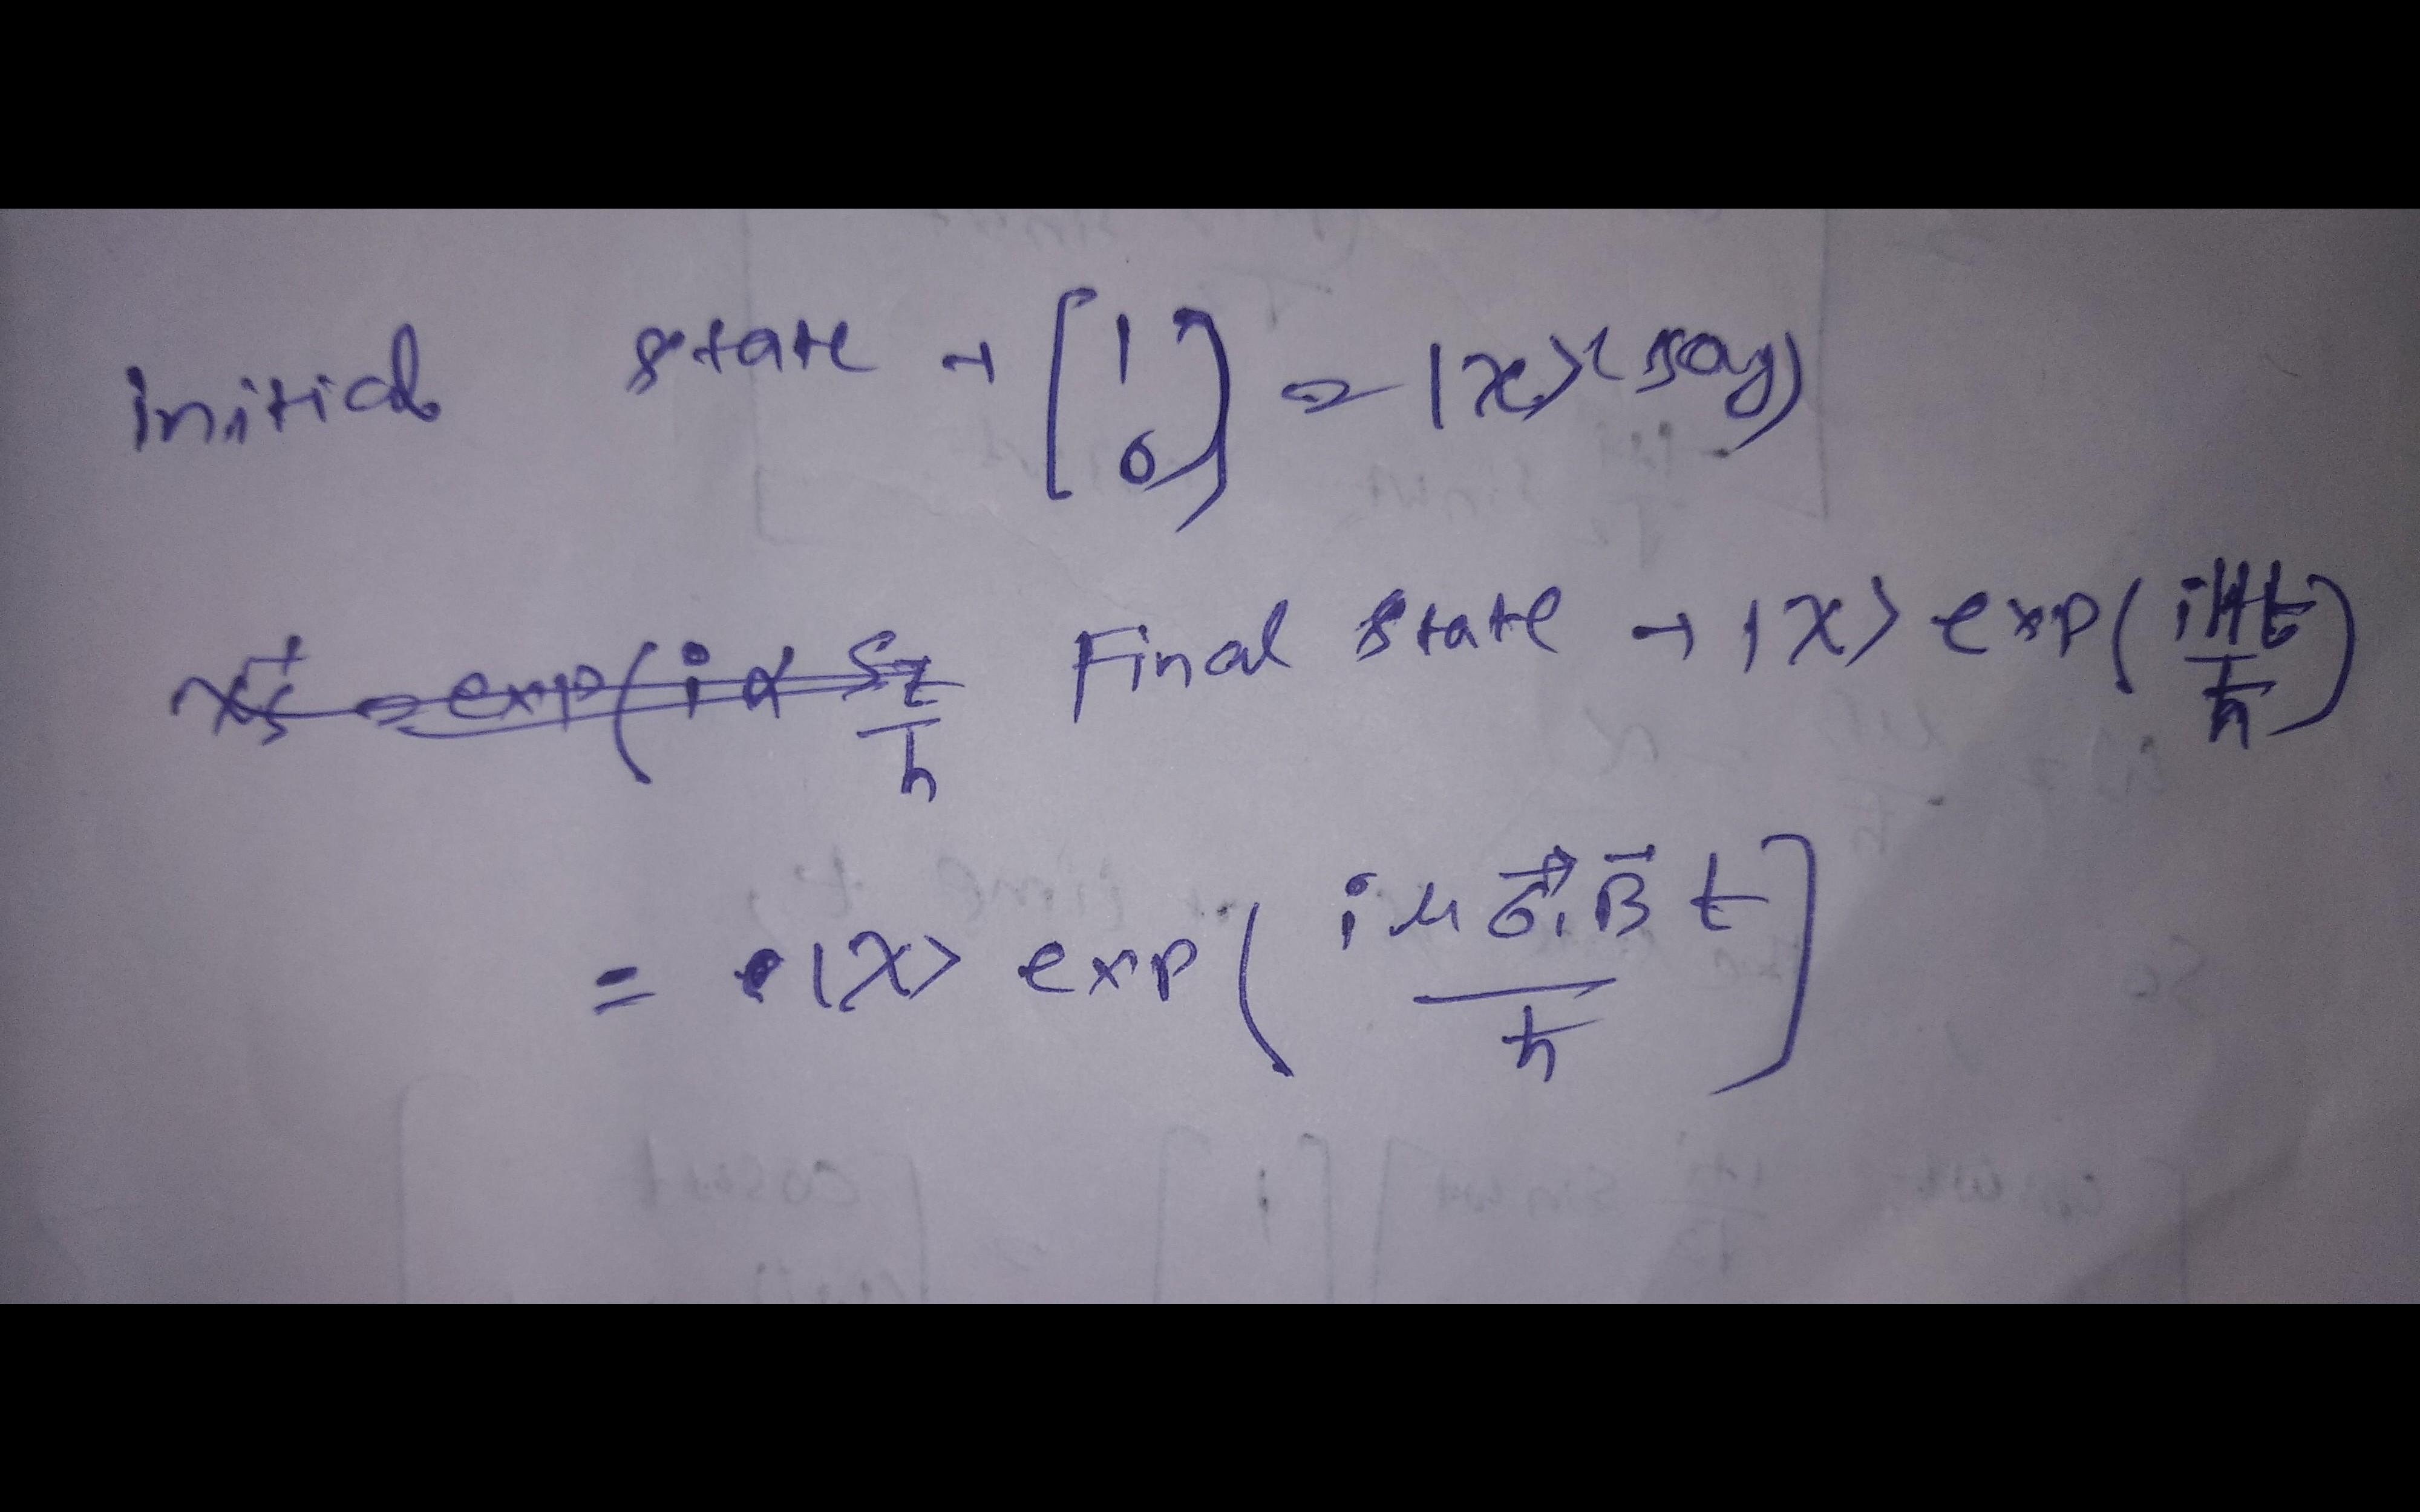 initial state → [1 0] = |χ> (say)
Final state → |χ> exp(iHt/ħ)
= |χ> exp(iμσ⃗.B⃗t/ħ)